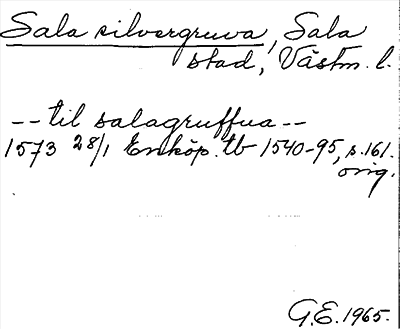 Sala silvergruva, Sala
stad, Västm. l.
-- til salagruffua --
1573 28/1 Enköp. tb 1540-95, s. 161.
orig.
G.E. 1965.